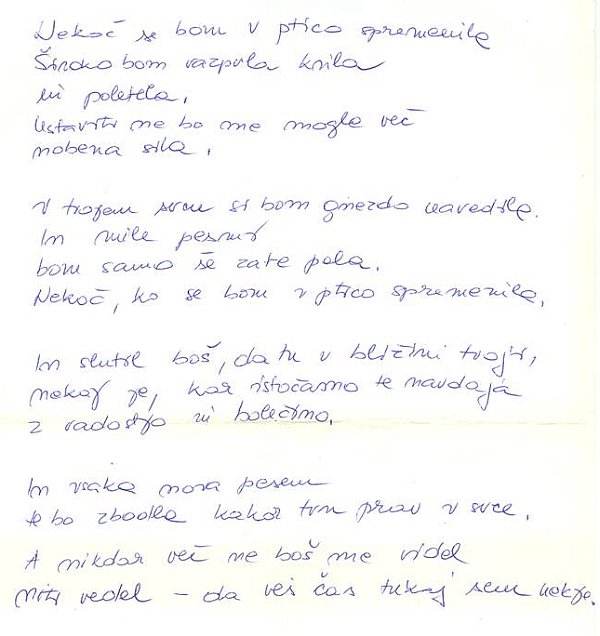 Nekoč se bom v ptico spremenila
Široko bom razprla krila
in poletela.
Ustaviti me ne bo mogla več
nobena sila.
V tvojem srcu si bom gnezdo naredila.
In mile pesmi
bom samo še zate pela.
Nekoč, ko se bom v ptico spremenila.
In slutil boš, da tu v bližini tvoji,
nekaj je, kar istočasno te navdaja
z radostjo in bolečino.
In vsaka nova pesem
te bo zbodla kakor trn prav v srce.
A nikdar več ne boš me videl
niti vedel – da ves čas tukaj sem nekje.